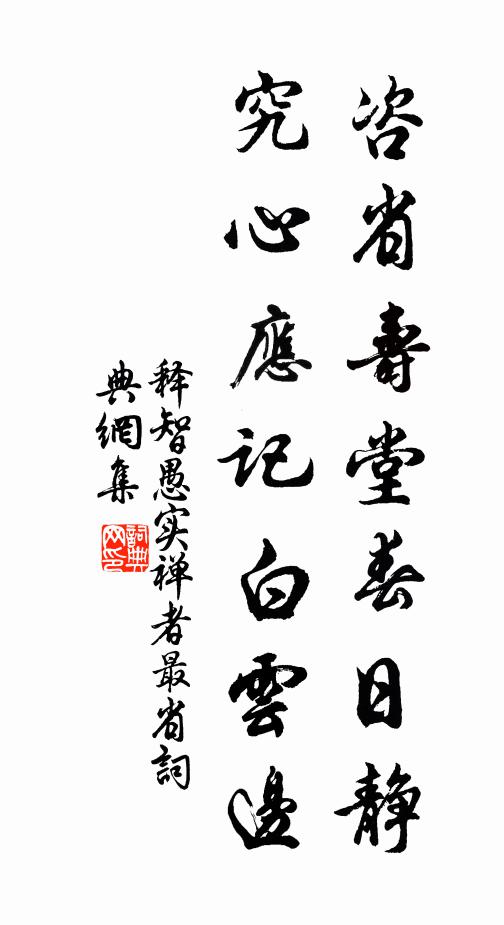 咨省壽堂春日静
究心應記白雲邊
释智愚实禅者最省詞
典網集
詞典
网印